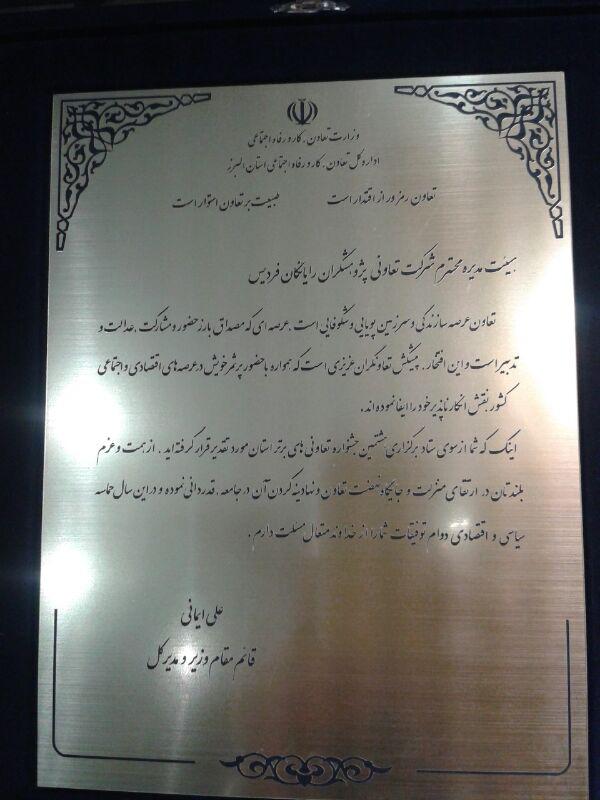 وزارت تعاون، کار و رفاه اجتماعی
اداره کل تعاون، کار و رفاه اجتماعی استان البرز
تعاون رمز و راز اقتدار است طبیعت بر تعاون استوار است
هیئت مدیره محترم شرکت تعاونی پژوهشگران رایانگان فردیس
تعاون عرصه سازندگی و سرزمین پویایی و شکوفایی است، عرصه ای که مصداق بارز حضور و مشارکت، عدالت و
تدبیر است و این افتخار، پیشکش تعاونگران عزیزی است که همواره با حضور پرثمر خویش در عرصه های اقتصادی و اجتماعی
کشور نقش انکار ناپذیر خود را ایفا نموده اند.
اینک که شما از سوی ستاد برگزاری هشتمین جشنواره تعاونی های برتر استان مورد تقدیر قرار گرفته اید، از همت و عزم
بلندتان در ارتقای منزلت و جایگاه نهضت تعاون و نهادینه کردن آن در جامعه، قدردانی نموده و در این سال حماسه
سیاسی و اقتصادی دوام توفیقات شما را از خداوند متعال مسئلت دارم.
علی ایمانی
قائم مقام وزیر و مدیر کل